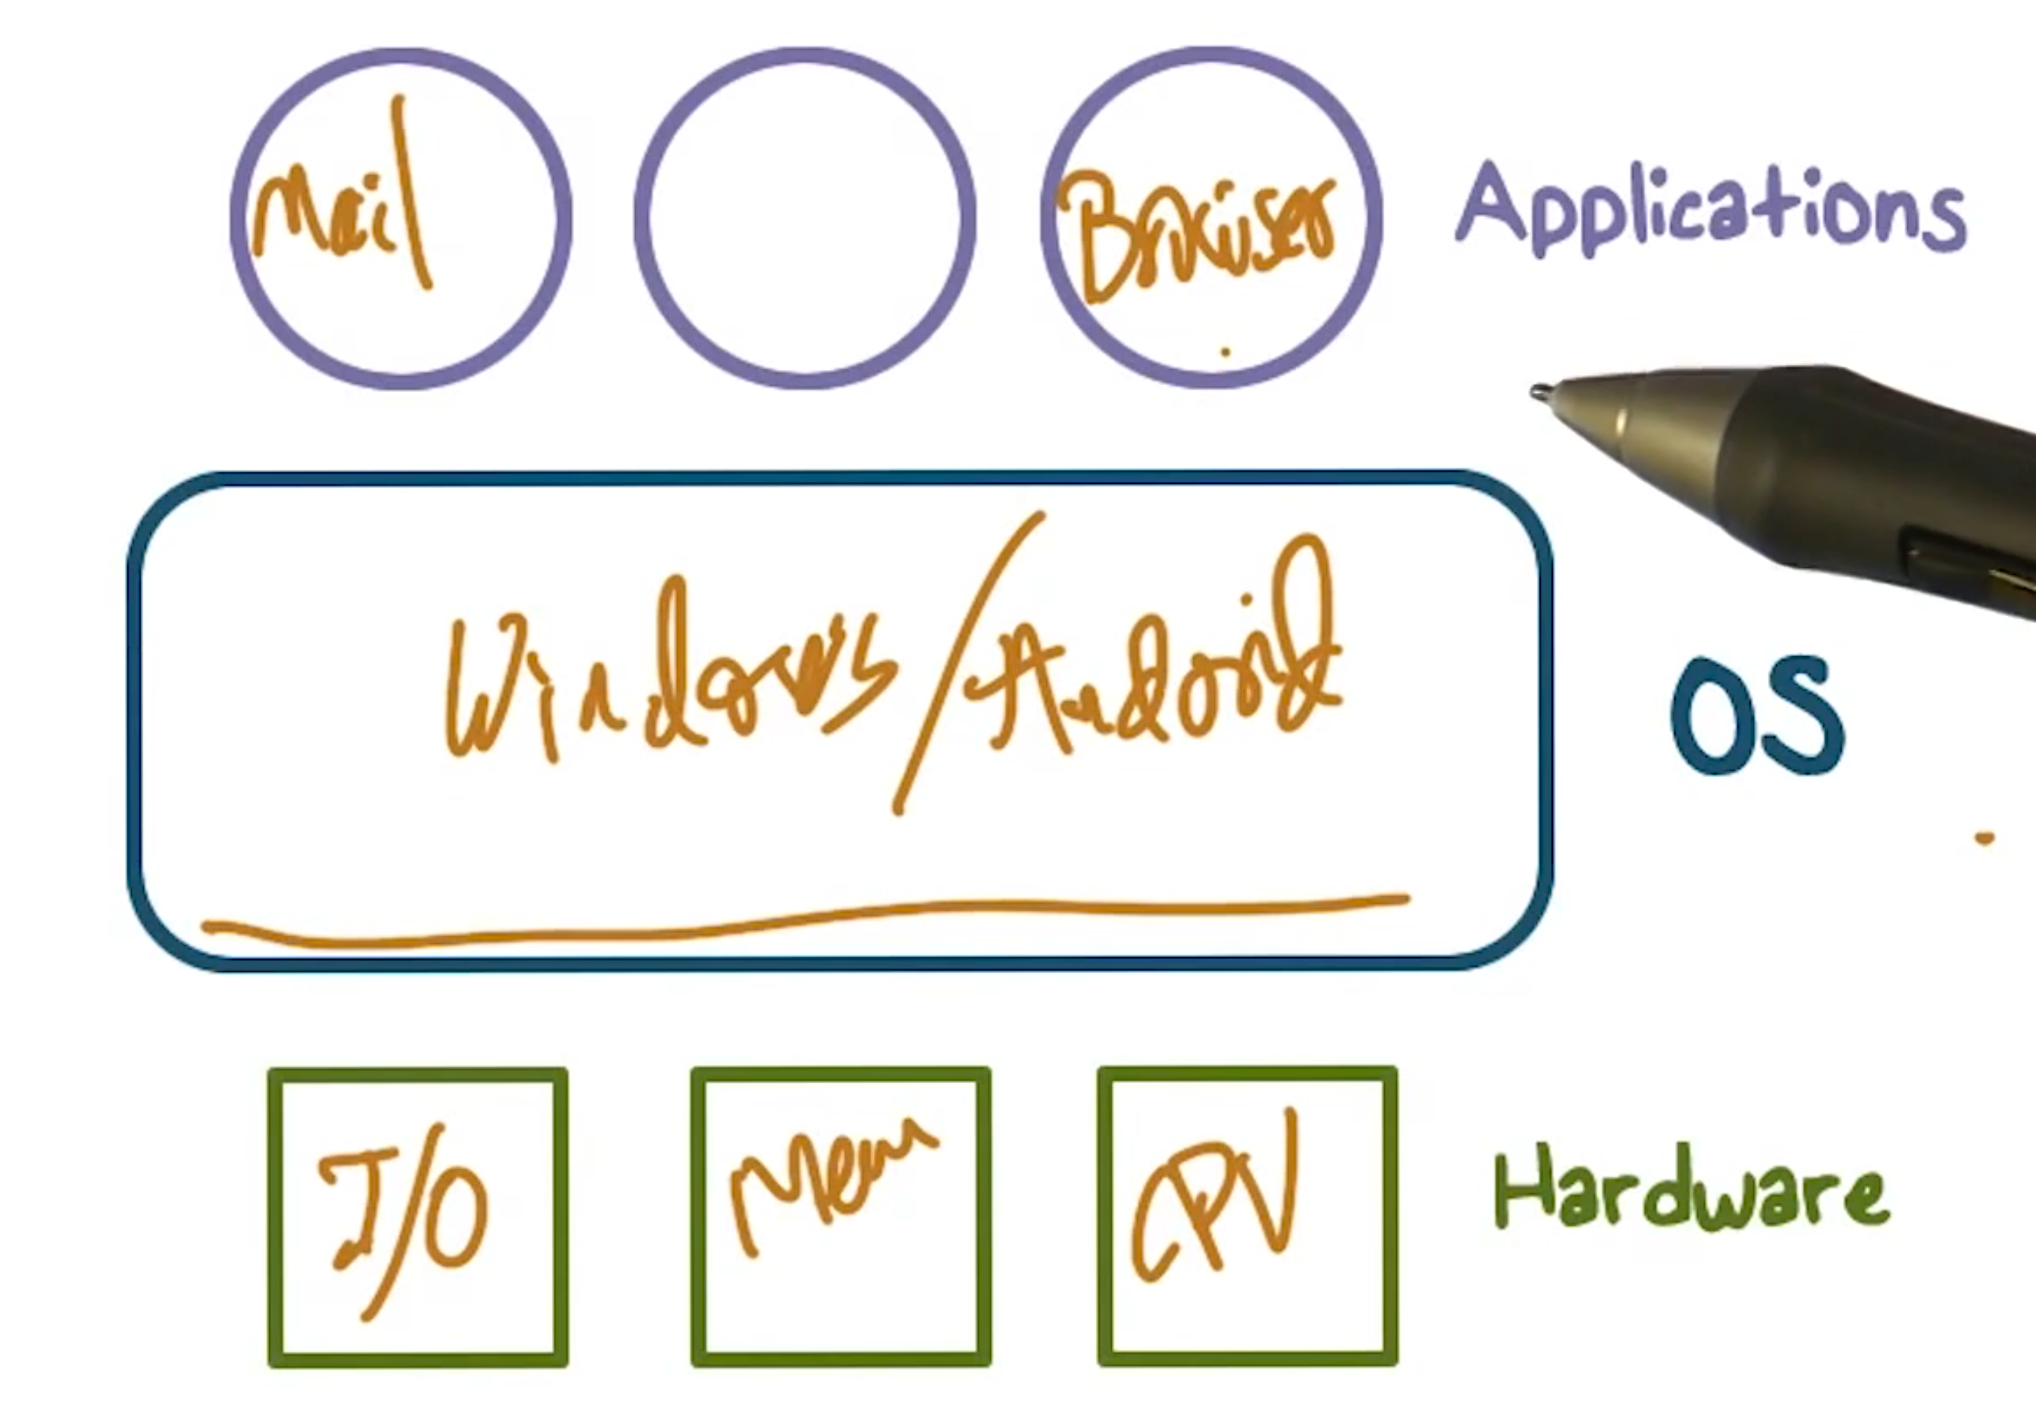 Mail Browser Applications
Windows/Android OS
I/O Mem CPU Hardware